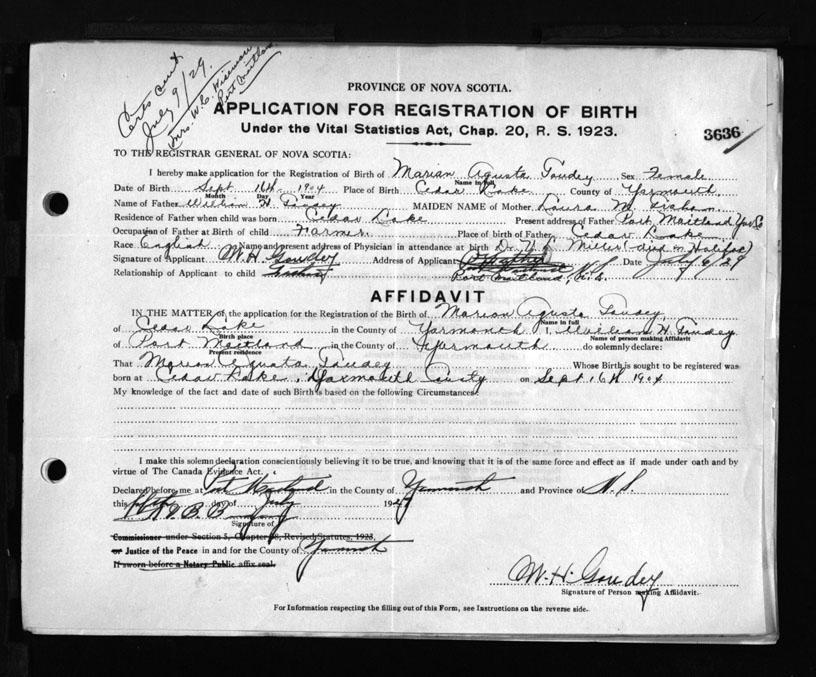 Certs sent
July 9/29.
Mrs. W. C. Wiseman
Port Maitland
PROVINCE OF NOVA SCOTIA.
APPLICATION FOR REGISTRATION OF BIRTH
Under the Vital Statistics Act, Chap. 20, R. S. 1923.
3636
TO THE REGISTRAR GENERAL OF NOVA SCOTIA:
I hereby make application for the Registration of Birth of Marian Agusta Goudey Sex Female
Name in full
Date of Birth Sept 16th 1904 Place of Birth Cedar Lake County of Yarmouth
Month Day Year
Name of Father William H Goudey MAIDEN NAME of Mother Laura M.
Residence of Father when child was born Cedar Lake Present address of Father Port Maitland Yar Co
Occupation of Father at Birth of child Farmer Place of birth of Father Cedar Lake
Race English Name and present address of Physician in attendance at birth Dr. Miller (died in Halifax)
Signature of Applicant W H Goudey Address of Applicant Date July 6/29
Relationship of Applicant to child Father Port Maitland, N.S.
AFFIDAVIT
IN THE MATTER of the application for the Registration of the Birth of Marion Agusta Goudey
Name in full
of Cedar Lake in the County of Yarmouth I, William H Goudey
Birth place Name of person making Affidavit
of Port Maitland in the County of Yarmouth do solemnly declare:
Present residence
That Marion Agusta Goudey Whose Birth is sought to be registered was
born at Cedar Lake, Yarmouth County on Sept 16th 1904
My knowledge of the fact and date of such Birth is based on the following Circumstances:
I make this solemn declaration conscientiously believing it to be true, and knowing that it is of the same force and effect as if made under oath and by
virtue of The Canada Evidence Act.
Declared before me at Port Maitland in the County of Yarmouth and Province of N.S.
this day of July 1929
Signature of
Commissioner under Section 5, Chapter 38, Revised Statutes, 1923,
or Justice of the Peace in and for the County of Yarmouth
If sworn before a Notary Public affix seal.
W. H. Goudey
Signature of Person making Affidavit.
For Information respecting the filling out of this Form, see Instructions on the reverse side.